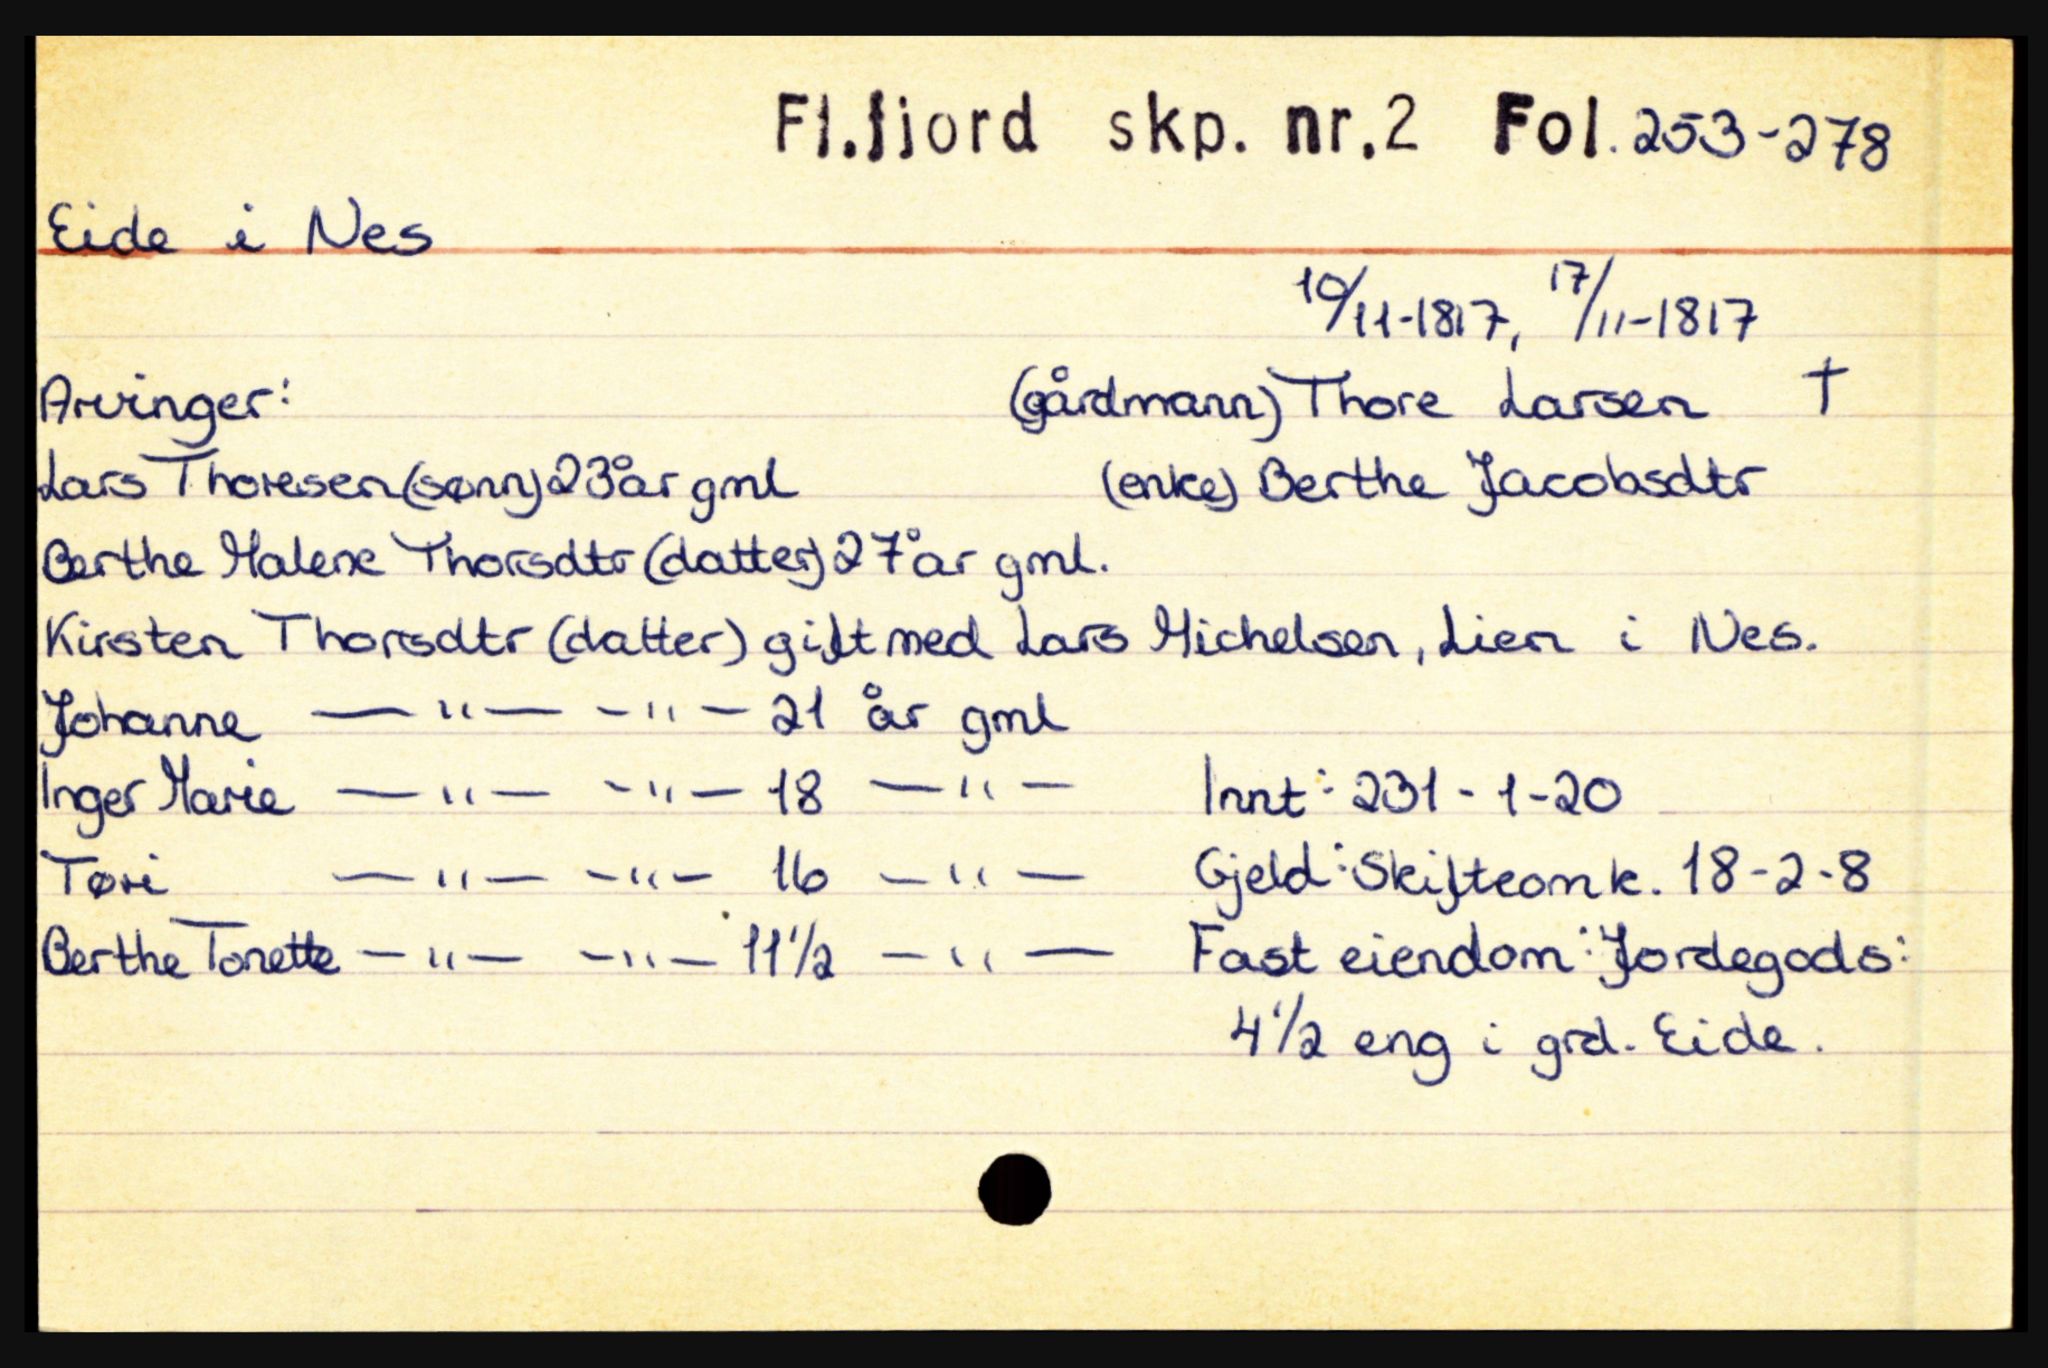 Fl.fjord skp. nr.2 Fol. 253-278
Eide i Nes
10/11-1817, 17/11-1817
Arvinger: (gårdmann) Thore Larsen †
Lars Thoresen (sønn) 23 år gml (enke) Berthe Jacobsdtr
Berthe Malene Thorsdtr (datter) 27 år gml.
Kirsten Thorsdtr (datter) gift med Lars Michelsen, Lien i Nes.
Johanne — " — - " — 21 år gml
Inger Marie — " — - " — 18 — " — Innt: 231-1-20
Tøri — " — - " — 16 — " — Gjeld: Skifteomk. 18-2-8
Berthe Tonette — " — - " — 11 1/2 — " — Fast eiendom: Jordegods:
4 1/2 eng i grd. Eide.